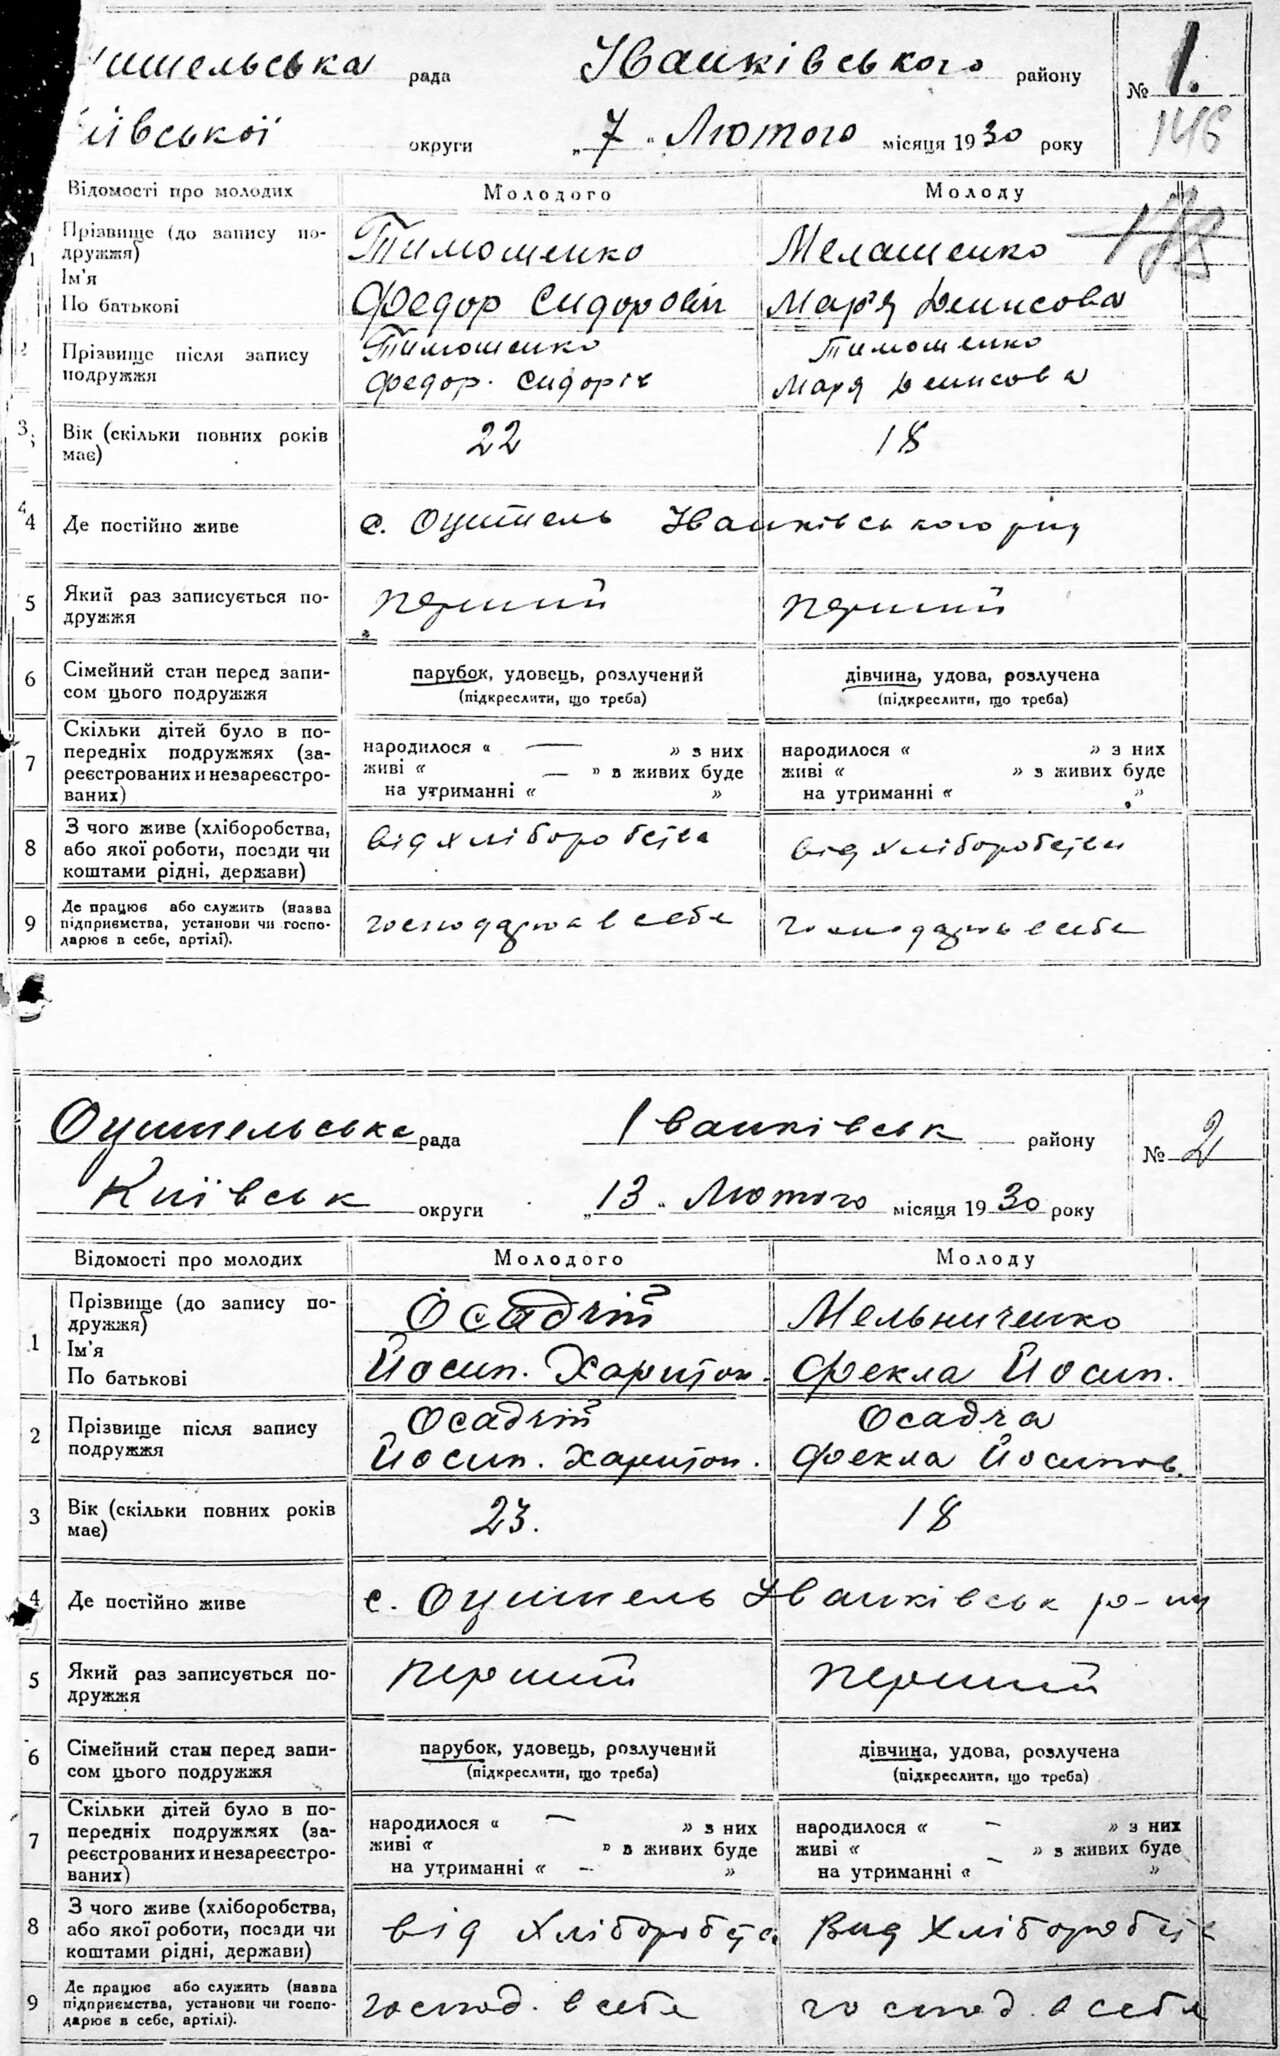 ишельська рада Іванківського району № 1.
ївської округи „ 7 “ Лютого місяця 1930 року 148
Відомості про молодих Молодого Молоду
1 Прізвище (до запису по-дружжя) Тимошенко Мелашенко
Ім'я
По батькові Федор Сидорович Мар'я Денисова
2 Прізвище після запису Тимошенко Тимошенко
подружжя Федор. Сидоріч Маря Денисова
3 Вік (скільки повних років має) 22 18
4 Де постійно живе с. Оцитель Іванківського р-ну
5 Який раз записується по-дружжя перший перший
6 Сімейний стан перед запи-сом цього подружжя парубок, удовець, розлучений дівчина, удова, розлучена
(підкреслити, що треба) (підкреслити, що треба)
7 Скільки дітей було в по-передніх подружжях (за-реєстрованих и незареєстро-ваних)
народилося « — » з них народилося « » з них
живі « — » в живих буде живі « » з живих буде
на утриманні « » на утриманні « »
8 З чого живе (хліборобства, або якої роботи, посади чи коштами рідні, держави) від хліборобства від хліборобства
9 Де працює або служить (назва підприємства, установи чи госпо-дарює в себе, артілі). господарює в себе господарює в себе
Оцительська рада Іванківськ району № 2
Київськ округи „ 13 “ Лютого місяця 1930 року
Відомості про молодих Молодого Молоду
1 Прізвище (до запису по-дружжя) Осадчій Мельниченко
Ім'я
По батькові Йосип. Харитон. Фекла Йосип.
2 Прізвище після запису Осадчій Осадча
подружжя Йосип. Харитон. Фекла Йосипов.
3 Вік (скільки повних років має) 23. 18
4 Де постійно живе с. Оцитель Іванківськ р-ну
5 Який раз записується по-дружжя перший перший
6 Сімейний стан перед запи-сом цього подружжя парубок, удовець, розлучений дівчина, удова, розлучена
(підкреслити, що треба) (підкреслити, що треба)
7 Скільки дітей було в по-передніх подружжях (за-реєстрованих и незареєстро-ваних)
народилося « — » з них народилося « — » з них
живі « » в живих буде живі « — » з живих буде
на утриманні « — » на утриманні « »
8 З чого живе (хліборобства, або якої роботи, посади чи коштами рідні, держави) від хліборобства Вид Хліборобств
9 Де працює або служить (назва підприємства, установи чи госпо-дарює в себе, артілі). господ. в себе господ. в себе